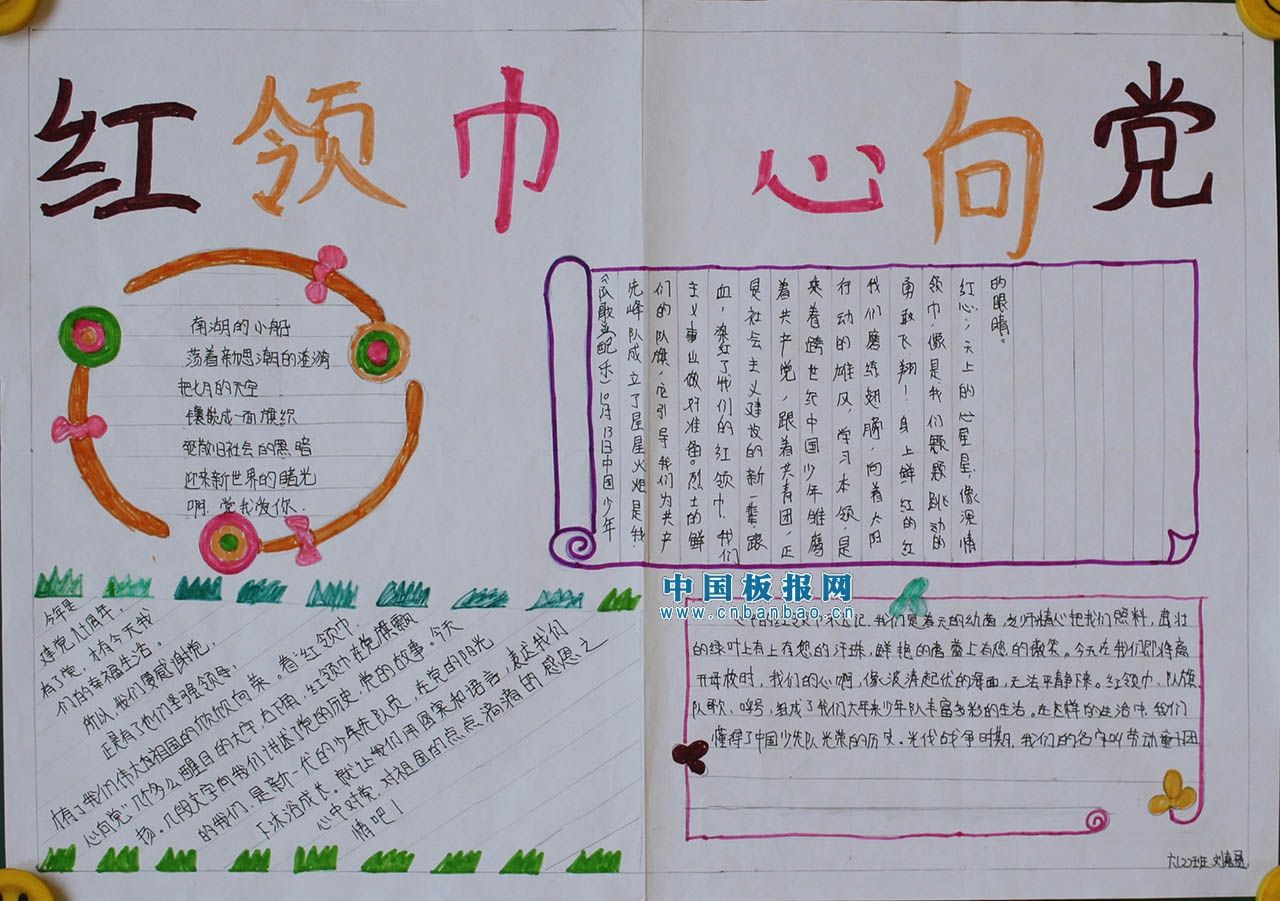 红领巾 心向党
南湖的小船
荡着新思潮的涟漪
把七月的天空
镶嵌成一面旗帜
驱散旧社会的黑暗
迎来新世界的曙光
啊，党我爱你．
《队歌为配乐》10月13日中国少年
先峰队成立了星星火炬是我
们的队旗，它引导我们为共产
主义事业做好准备。烈士的鲜
血，染红了我们的红领巾，我们
是社会主义建设的新一辈，跟
着共产党，跟着共青团，正
乘着跨世纪中国少年雏鹰
行动的雄风，学习本领，是
我们磨练翅膀，向着太阳
勇敢飞翔！身上鲜红的红
领巾，像是我们颗颗跳动的
红心，天上的星星，像深情
的眼睛。
今年是
建党九十周年，
有了党，才有今天我
们的幸福生活。
所以，我们要感谢党，
正是有了他们坚强领导，
才有了我们伟大祖国的欣欣向荣。看“红领巾
心向党”几个多么醒目的大字，右下角，红领巾在党旗飘
扬。几段文字向我们讲述了党的历史，党的故事。今天
的我们，是新一代的少年先队员，在党的阳光
下沐浴成长。就让我们用图案和语言，表达我们
心中对党，对祖国的点点滴滴的感恩之
情吧！
中国板报网
www.cnbanbao.cn
我们是春天的幼苗，老师精心把我们照料，茁壮
的绿叶上有上有您的汗珠，鲜艳的蓓蕾上有您的微笑。今天在我们即将离
开母校时，我们的心啊，像波涛起伏的海面，无法平静下来。红领巾、队旗、
队歌、呼号，组成了我们六年来少年队丰富多彩的生活。在这样的生活中，我们
懂得了中国少先队光荣的历史。战争时期，我们的名字叫劳动童子团
六(2)班 刘